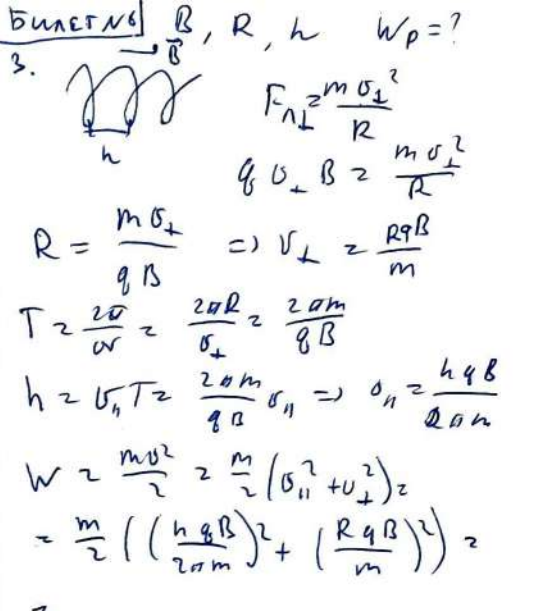 БИЛЕТ №6 B, R, h Wp = ?
3. B⃗
h
Fл⊥ = mυ⊥²/R
qυ⊥B = mυ⊥²/R
R = mυ⊥/qB => υ⊥ = RqB/m
T = 2π/ω = 2πR/υ⊥ = 2πm/qB
h = υ∥T = 2πm/qB υ∥ => υ∥ = hqB/2πm
W = mυ²/2 = m/2 (υ∥² + υ⊥²) =
= m/2 ((hqB/2πm)² + (RqB/m)²) =